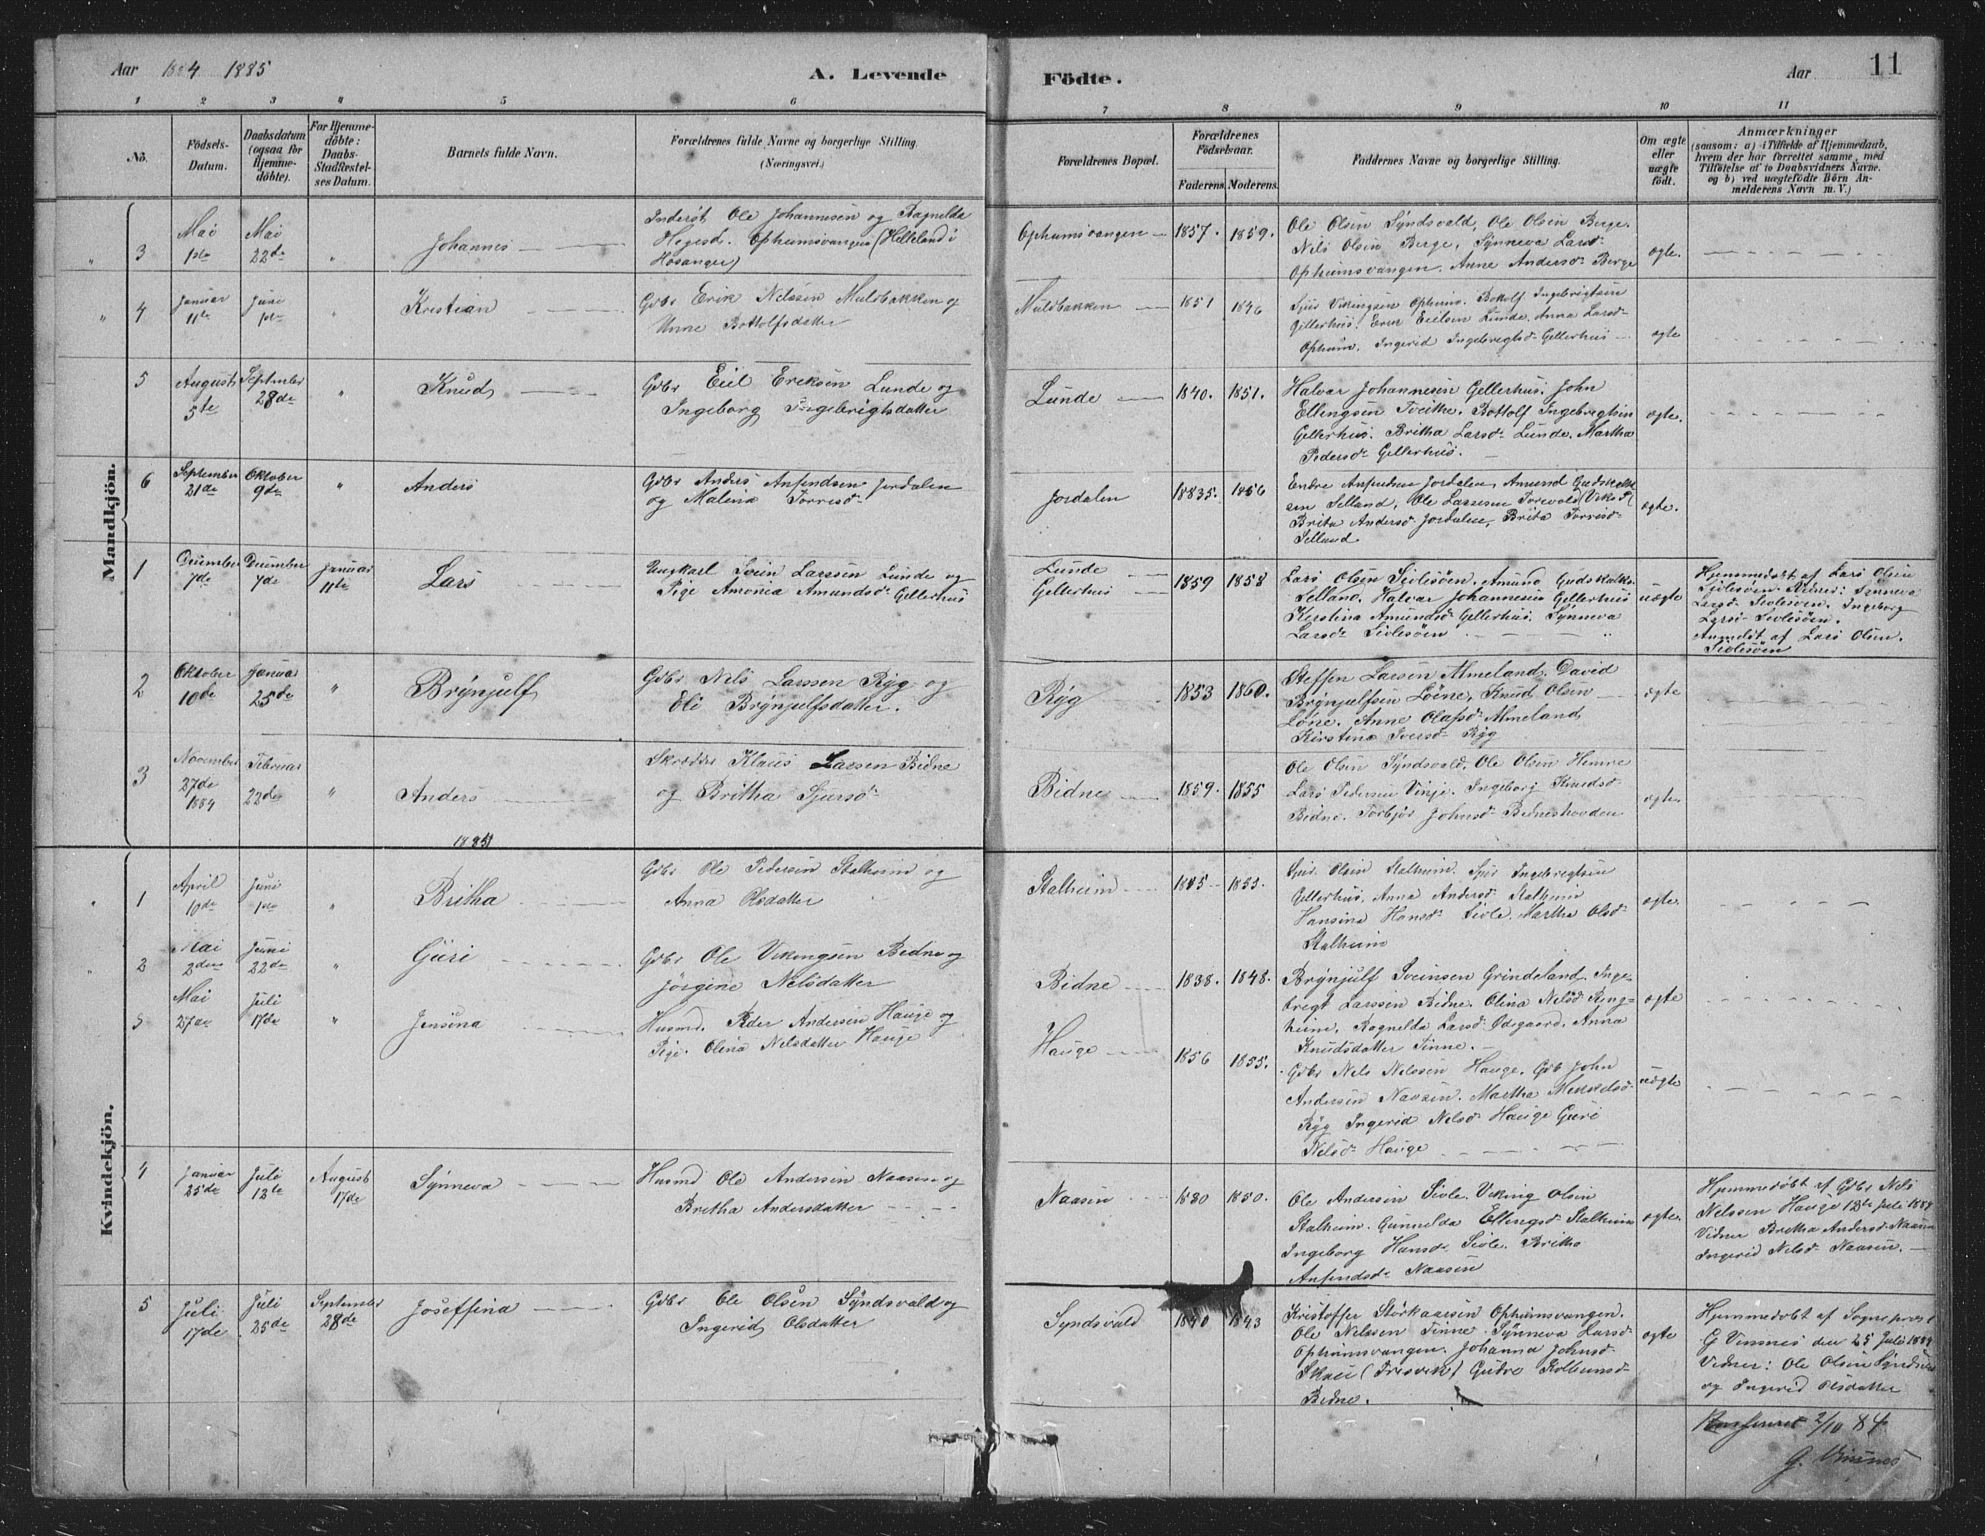 Aar 1884 1885
A. Levende
Födte.
Aar
11
1 2 3 4 5 6 7 8 9 10 11
No.
Födsels-
Datum.
Daabsdatum
(ogsaa for
Hjemme-
döbte).
For Hjemme-
döbte:
Daabs-
Stadfæstel-
ses Datum.
Barnets fulde Navn.
Forældrenes fulde Navne og borgerlige Stilling.
(Næringsvei.)
Forældrenes Bopæl.
Forældrenes
Födselsaar.
Faderens. Moderens.
Faddernes Navne og borgerlige Stilling.
Om ægte
eller
uægte
födt.
Anmærkninger
(saasom: a) i Tilfælde af Hjemmedaab,
hvem der har forrettet samme, med
Tilföielse af to Daabsvidners Navne.
og b) ved uægtefödte Börn An-
melderens Navn m. V.)
Mandkjön.
3
Mai
1ste
Mai
22de
"
Johannes
Inderst Ole Johannesen og Ragnilda
Ophumsvangen (Helleland i
Hosanger)
Ophumsvangen
1857. 1859.
Ole Olsen Syndsvald, Ole Olsen Berge.
Nils Olsen Berge, Synneva Larsd.
Ophumsvangen. Anne Andersd. Berge
ægte.
4
Januar
11te
Juni
1ste
Kristian
Gdbr Erik Nilssen Muldbakken og
Unne Bottolfsdatter
Muldbakken
1851 1846
Sjur Vikingsen Ophum. Botolf Ingebrigtsen
Gjellerhus. Erik Eilsen Lunde. Anna Larsd.
Ophum. Ingerid Ingebregtsd. Gellerhus
ægte
5
August
5te
September
28de
"
Knud
Gdbr Eiel Eriksen Lunde og
Ingeborg Ingebrigtsdatter
Lunde
1840. 1851.
Halvar Johannesen Gellerhus. John
Ellengsen Tveithe. Bottolf Ingebregtsen
Gellerhus. Britha Larsd. Lunde. Martha
Pedersd. Gellerhus.
ægte.
6
September
21de
Oktober
9de
"
Anders
Gdbr Anders Anfindsen Jordalen
og Malena Torresd.
Jordalen
18835. 1856
Endre Anfindsen Jordalen, Amund Gudskalk-
sen Selland, Ole Larssen Torevold (Viks P)
Brita Andersd. Jordalen, Brita Torresd.
Selland
ægte.
1
December
7de
December
7de
Januar
11te
Lars
Ungkarl Svein Larssen Lunde og
Pige Amonea Amundsd. Gellerhus
Lunde
Gellerhus
1859 1858
Lars Olsen Sivlesöen. Amund Gudskalks.
Selland. Halvar Johannesen Gellerhus
Kerstina Amundsd. Gellerhus. Synneva
Larsd. Sivlesöen
uægte
Hjemmedöbt af Lars Olsen
Sivlesöen. Vidner: Synneva
Larsd. Sivlesöen. Ingeborg
Larsd. Sivlesöen.
Anmeldt af Lars Olsen.
Sivlesöen
2
Oktober
10de
Januar
25de
"
Brynjulf
Gdbr Nels Larssen Ryg og
Eli Brynjulfsdatter.
Ryg
1853 1860.
Steffen Larsen Almeland. David
Brynjulfsen Löene, Knud Olsen
Löne. Anne Olafsd. Almeland
Kirstina Iversd. Ryg
ægte
3
November
27de
1884
Februar
22de
"
Anders
Skrædder Klaus Larsen Bidne
og Britha Sjursd.
Bidne
1859. 1855
Ole Olsen Syndsvald. Ole Olsen Himne
Lars Pedersen Vinje. Ingeborg Knudsd.
Bidne. Torbjör Johnsd. Bidneshovden
ægte.
Kvindekjön.
1
April
10de
Juni
1ste
"
Britha
Gdbr Ole Pedersen Stalheim og
Anna Olsdatter
Stalheim
1853.
Sjur Olsen Stalheim. Sjur Ingebregtsen
Gellerhus. Anna Andersd. Stalheim
Hansina Hansd. Sivle. Martha Olsd.
Stalheim
ægte.
2
Mai
2den
Juni
22de
"
Guri
Gdbr Ole Vikingsen Bidne og
Jörgine Nelsdatter
Bidne
1838. 1848.
Brynjulf Sveinsen Grindeland. Inge-
bregt Larssen Bidne. Olina Nelsd. Ring-
heim. Ragnelda Larsd. Ödegaard. Anna
Knudsdatter Finne.
ægte
3
Mai
27de
Juli
17de
"
Jensina
Husmd. Peder Andersen Hauge og
Pige. Olina Nelsdatter Hauge
Hauge
1856 1855.
Gdbr Nels Nelssen Hauge. Gdb John
Andersen Naasen. Martha Mekkelsd.
Ryg Ingerid Nelsd. Hauge Guri
Nelsd. Hauge
uægte
4
Januar
25de
Juli
13te
August
17de
Synneva
Husmd Ole Andersen Naasen og
Bretha Andersdatter
Naasen
1830 1850.
Ole Andersen Sivle. Viking Olsen
Stalheim. Gunnelda Ellengsd. Stalheim
Ingeborg Hansd. Sivle. Britha
Anfendsd. Naasen
ægte.
Hjemmedöbt af Gdbr Nels
Nelssen Hauge 13te Juli 1884
Vidner Bretha Andersd. Naasen
Ingerid Nelsd. Naasen.
5
Juli
17de
Juli
25de
September
28de
Joseffina
Gdbr Ole Olsen Syndsvald og
Ingerid Olsdatter
Syndsvald
1840 1843
Kristoffer Storkaarsen Ophumsvangen.
Ole Nelssen Finne. Synneva Larsd.
Ophumsvangen. Johanna Johnsd.
Skaei (Tresvik) Gudve Kolbensd.
Bidne.
ægte
Hjemmedöbt af Sogneprest
G Vinsnes den 25 Juli 1884
Vidner: Ole Olsen Syndsvald
og Ingerid Olsdatter
Konfereret 2/10 84
G. Vinsnes